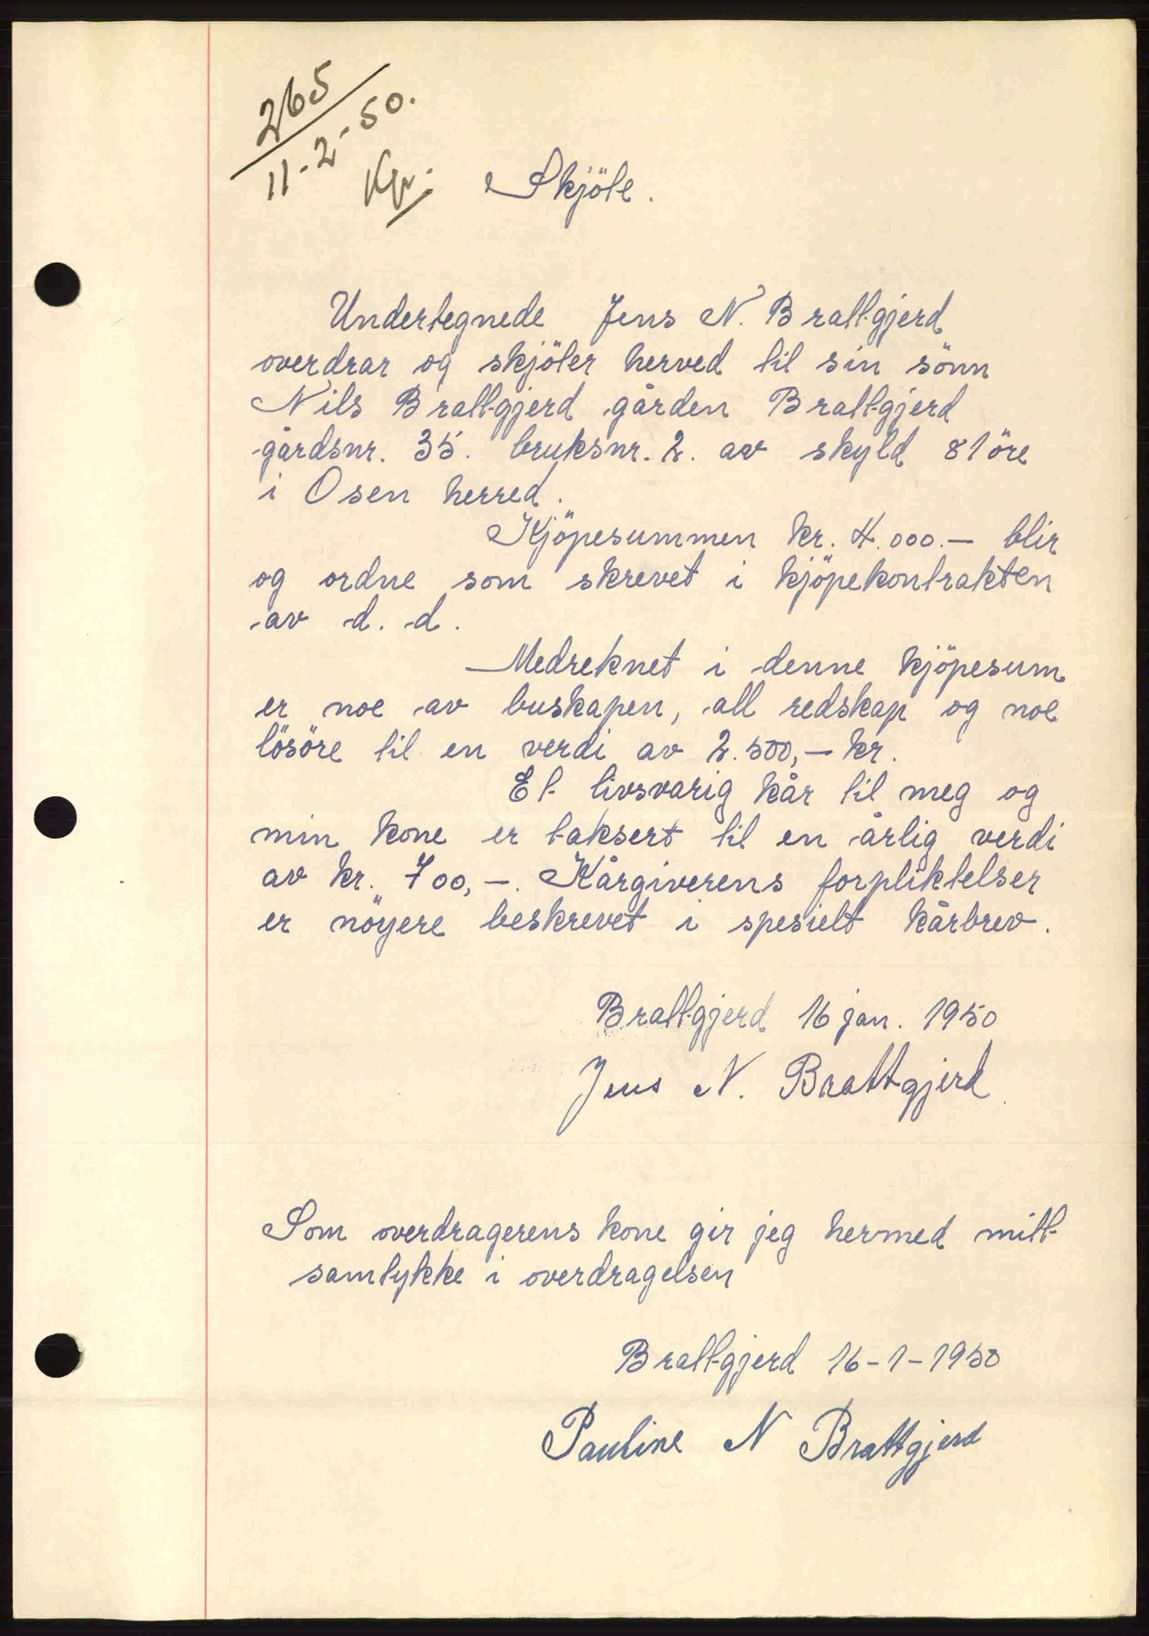 265
11-2-50.
Kpr.
Skjöte.
Undertegnede Jens N. Brattgjerd
overdrar og skjöter herved til sin sönn
Nils Brattgjerd gården Brattgjerd
gårdsnr. 35. bruksnr. 2. av skyld 81 öre
i Osen herred.
Kjöpesummen kr. 4.000.- blir
og ordne som skrevet i kjöpekontrakten
av d. d.
Medreknet i denne kjöpesum
er noe av buskapen, all redskap og noe
lösöre til en verdi av 2.500,- kr.
Et livsvarig kår til meg og
min kone er taksert til en årlig verdi
av kr. 700,-. Kårgiverens forpliktelser
er nöyere beskrevet i spesielt kårbrev.
Brattgjerd 16 jan. 1950
Jens N. Brattgjerd
Som overdragerens kone gir jeg hermed mitt
samtykke i overdragelsen
Brattgjerd 16-1-1950
Pauline N Brattgjerd